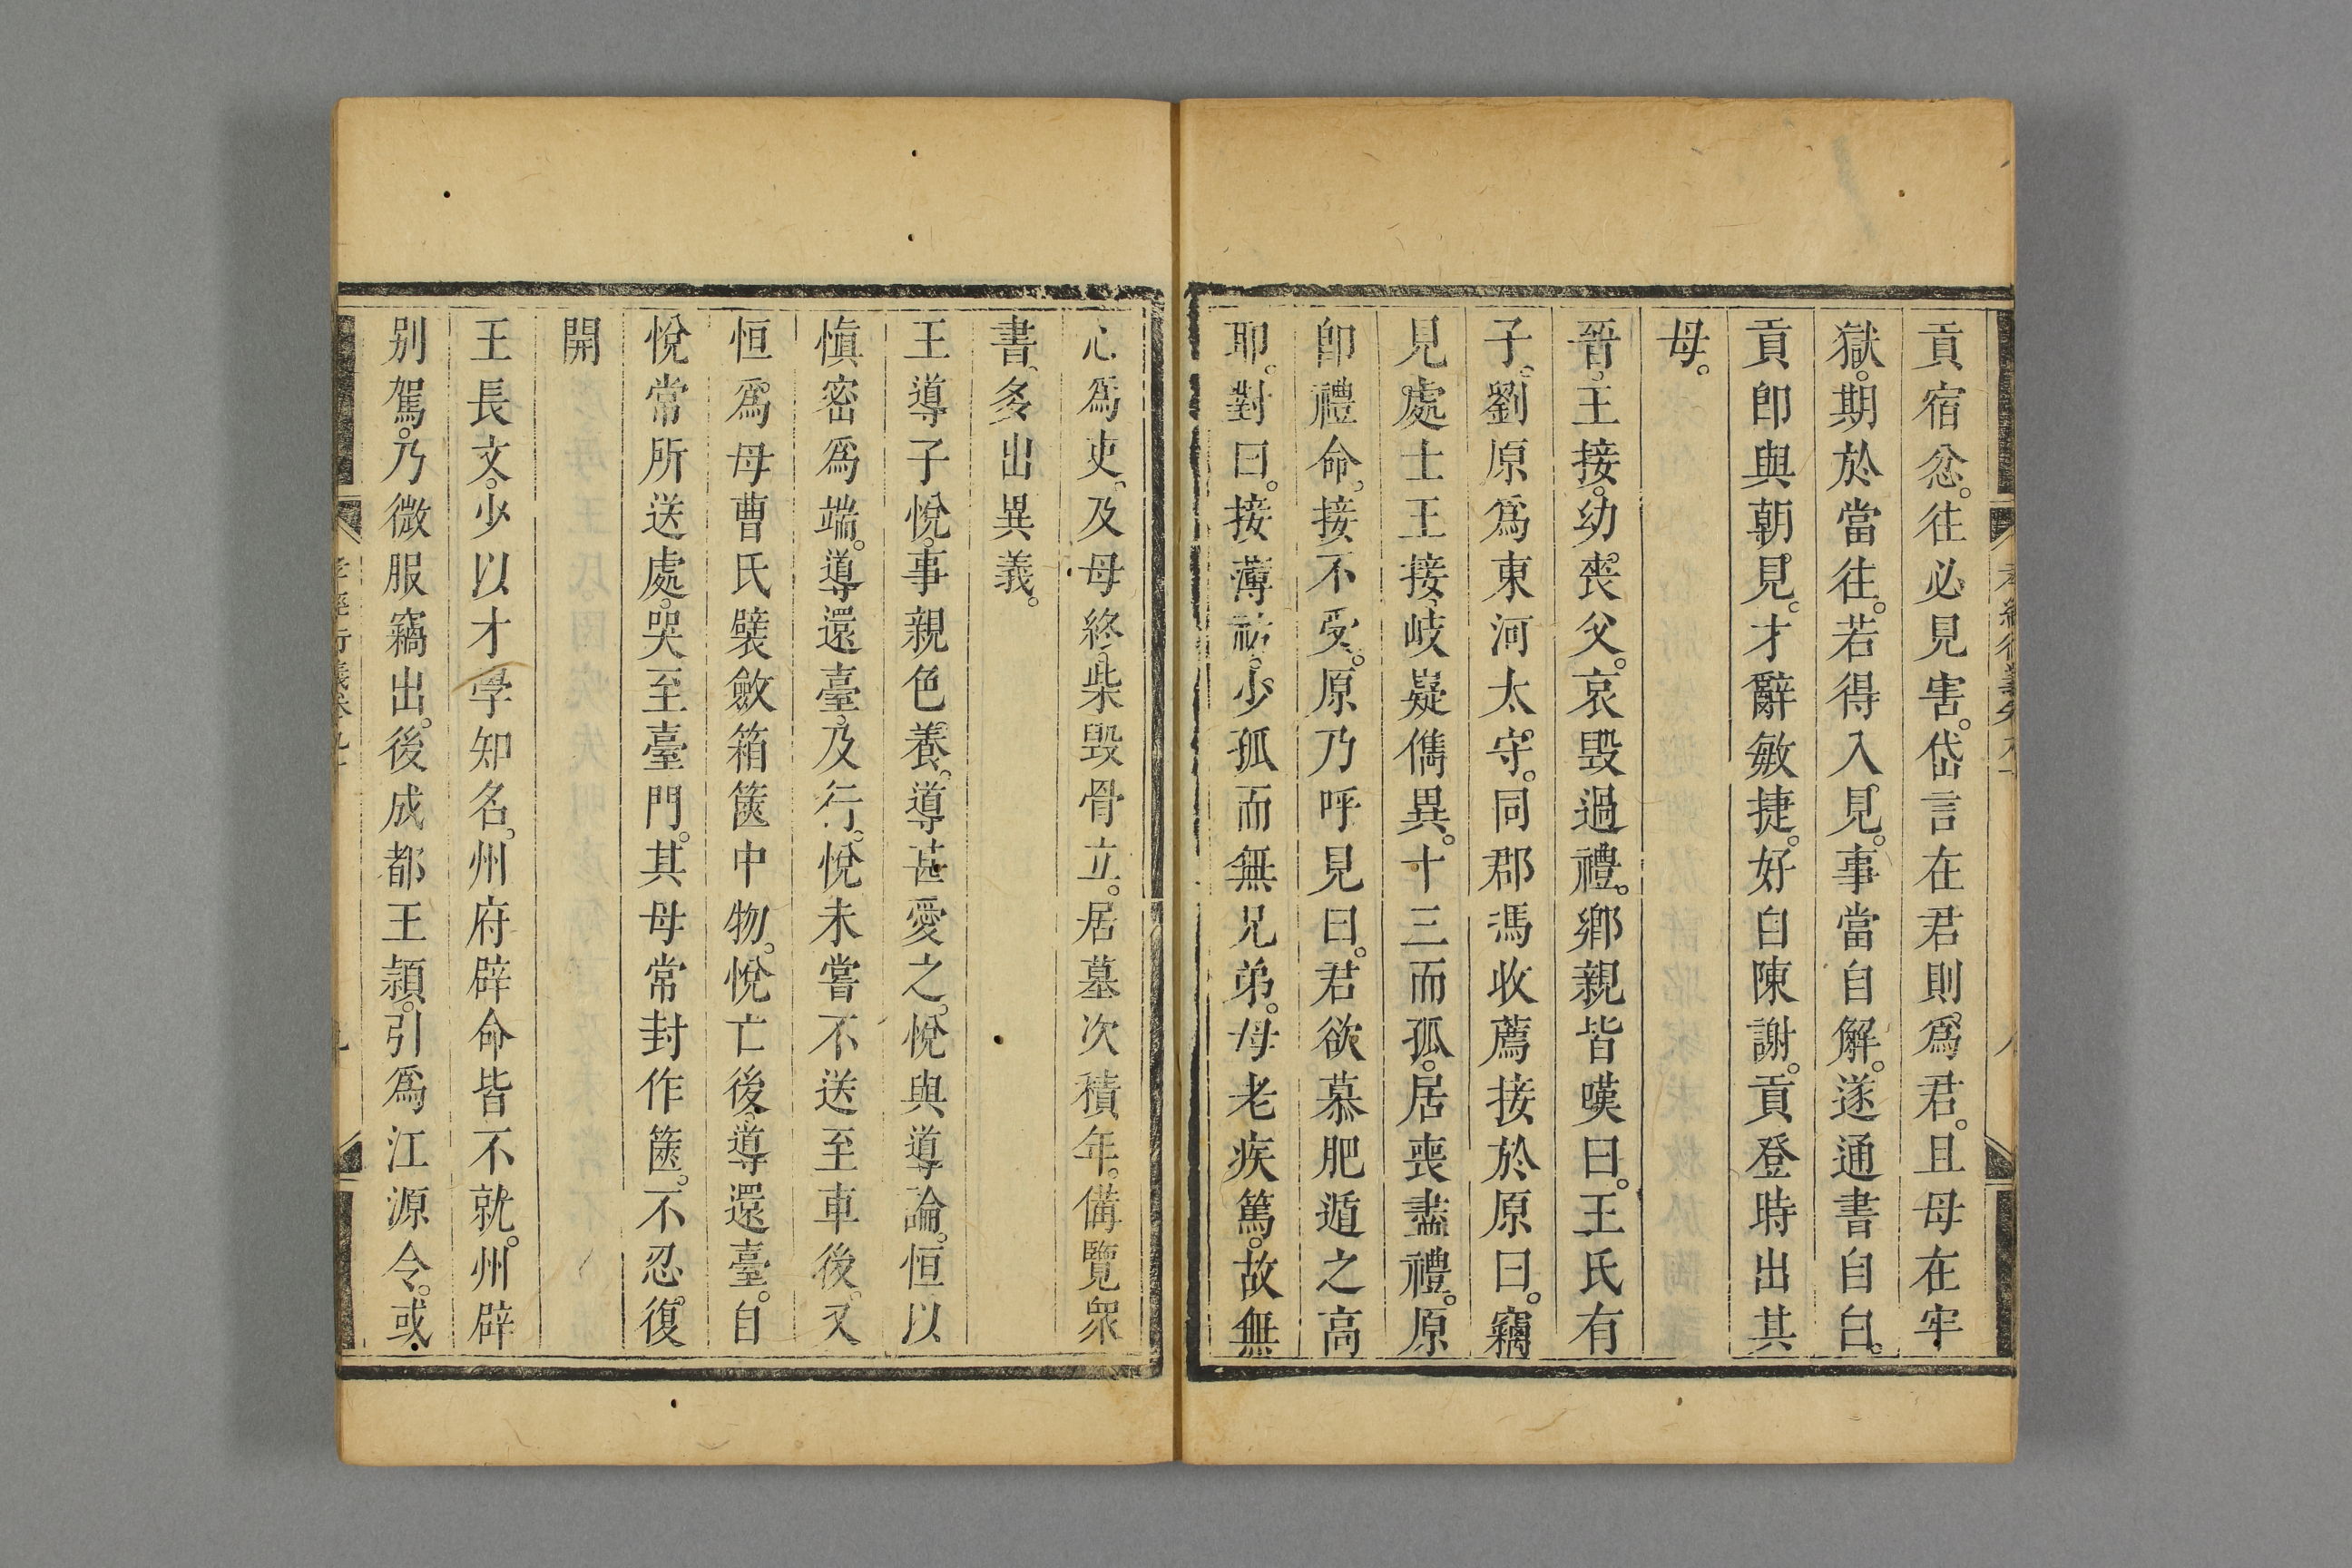 貢宿忿。往必見害。岱言在君則爲君。且母在牢
獄。期於當往。若得入見。事當自解。遂通書自白。
貢卽與朝見。才辭敏捷。好自陳謝。貢登時出其
母。
晉。王接。幼喪父。哀毀過禮。鄉親皆嘆曰。王氏有
子。劉原爲東河太守。同郡馮收薦接於原曰。竊
見處士王接。岐嶷儁異。十三而孤。居喪盡禮。原
卽禮命。接不受。原乃呼見曰。君欲慕肥遁之高
耶。對曰。接薄祜。少孤而無兄弟。母老疾篤。故無
心爲吏。及母終。柴毀骨立。居墓次積年。備覽眾
書。多出異義。
王導子悅。事親色養。導甚愛之。悅與導論。恒以
慎密爲端。導還臺。及行。悅未嘗不送至車後。又
恒爲母曹氏襞斂箱篋中物。悅亡後。導還臺。自
悅常所送處。哭至臺門。其母常封作篋。不忍復
開
王長文。少以才學知名。州府辟命皆不就。州辟
別駕。乃微服竊出。後成都王潁。引爲江源令。或